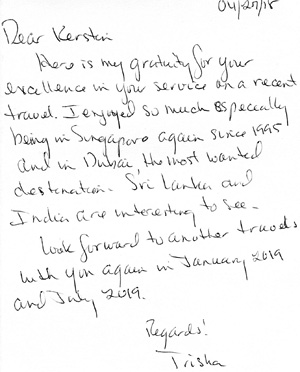 04/27/18
Dear Kerstin
Here is my gratuity for your
excellence in your service on a recent
travel. I enjoyed so much especially
being in Singapore again since 1995
and in Dubai the most wanted
destination. Sri Lanka and
India are interesting to see.
Look forward to another travels
with you again in January 2019
and July 2019.
Regards!
Trisha